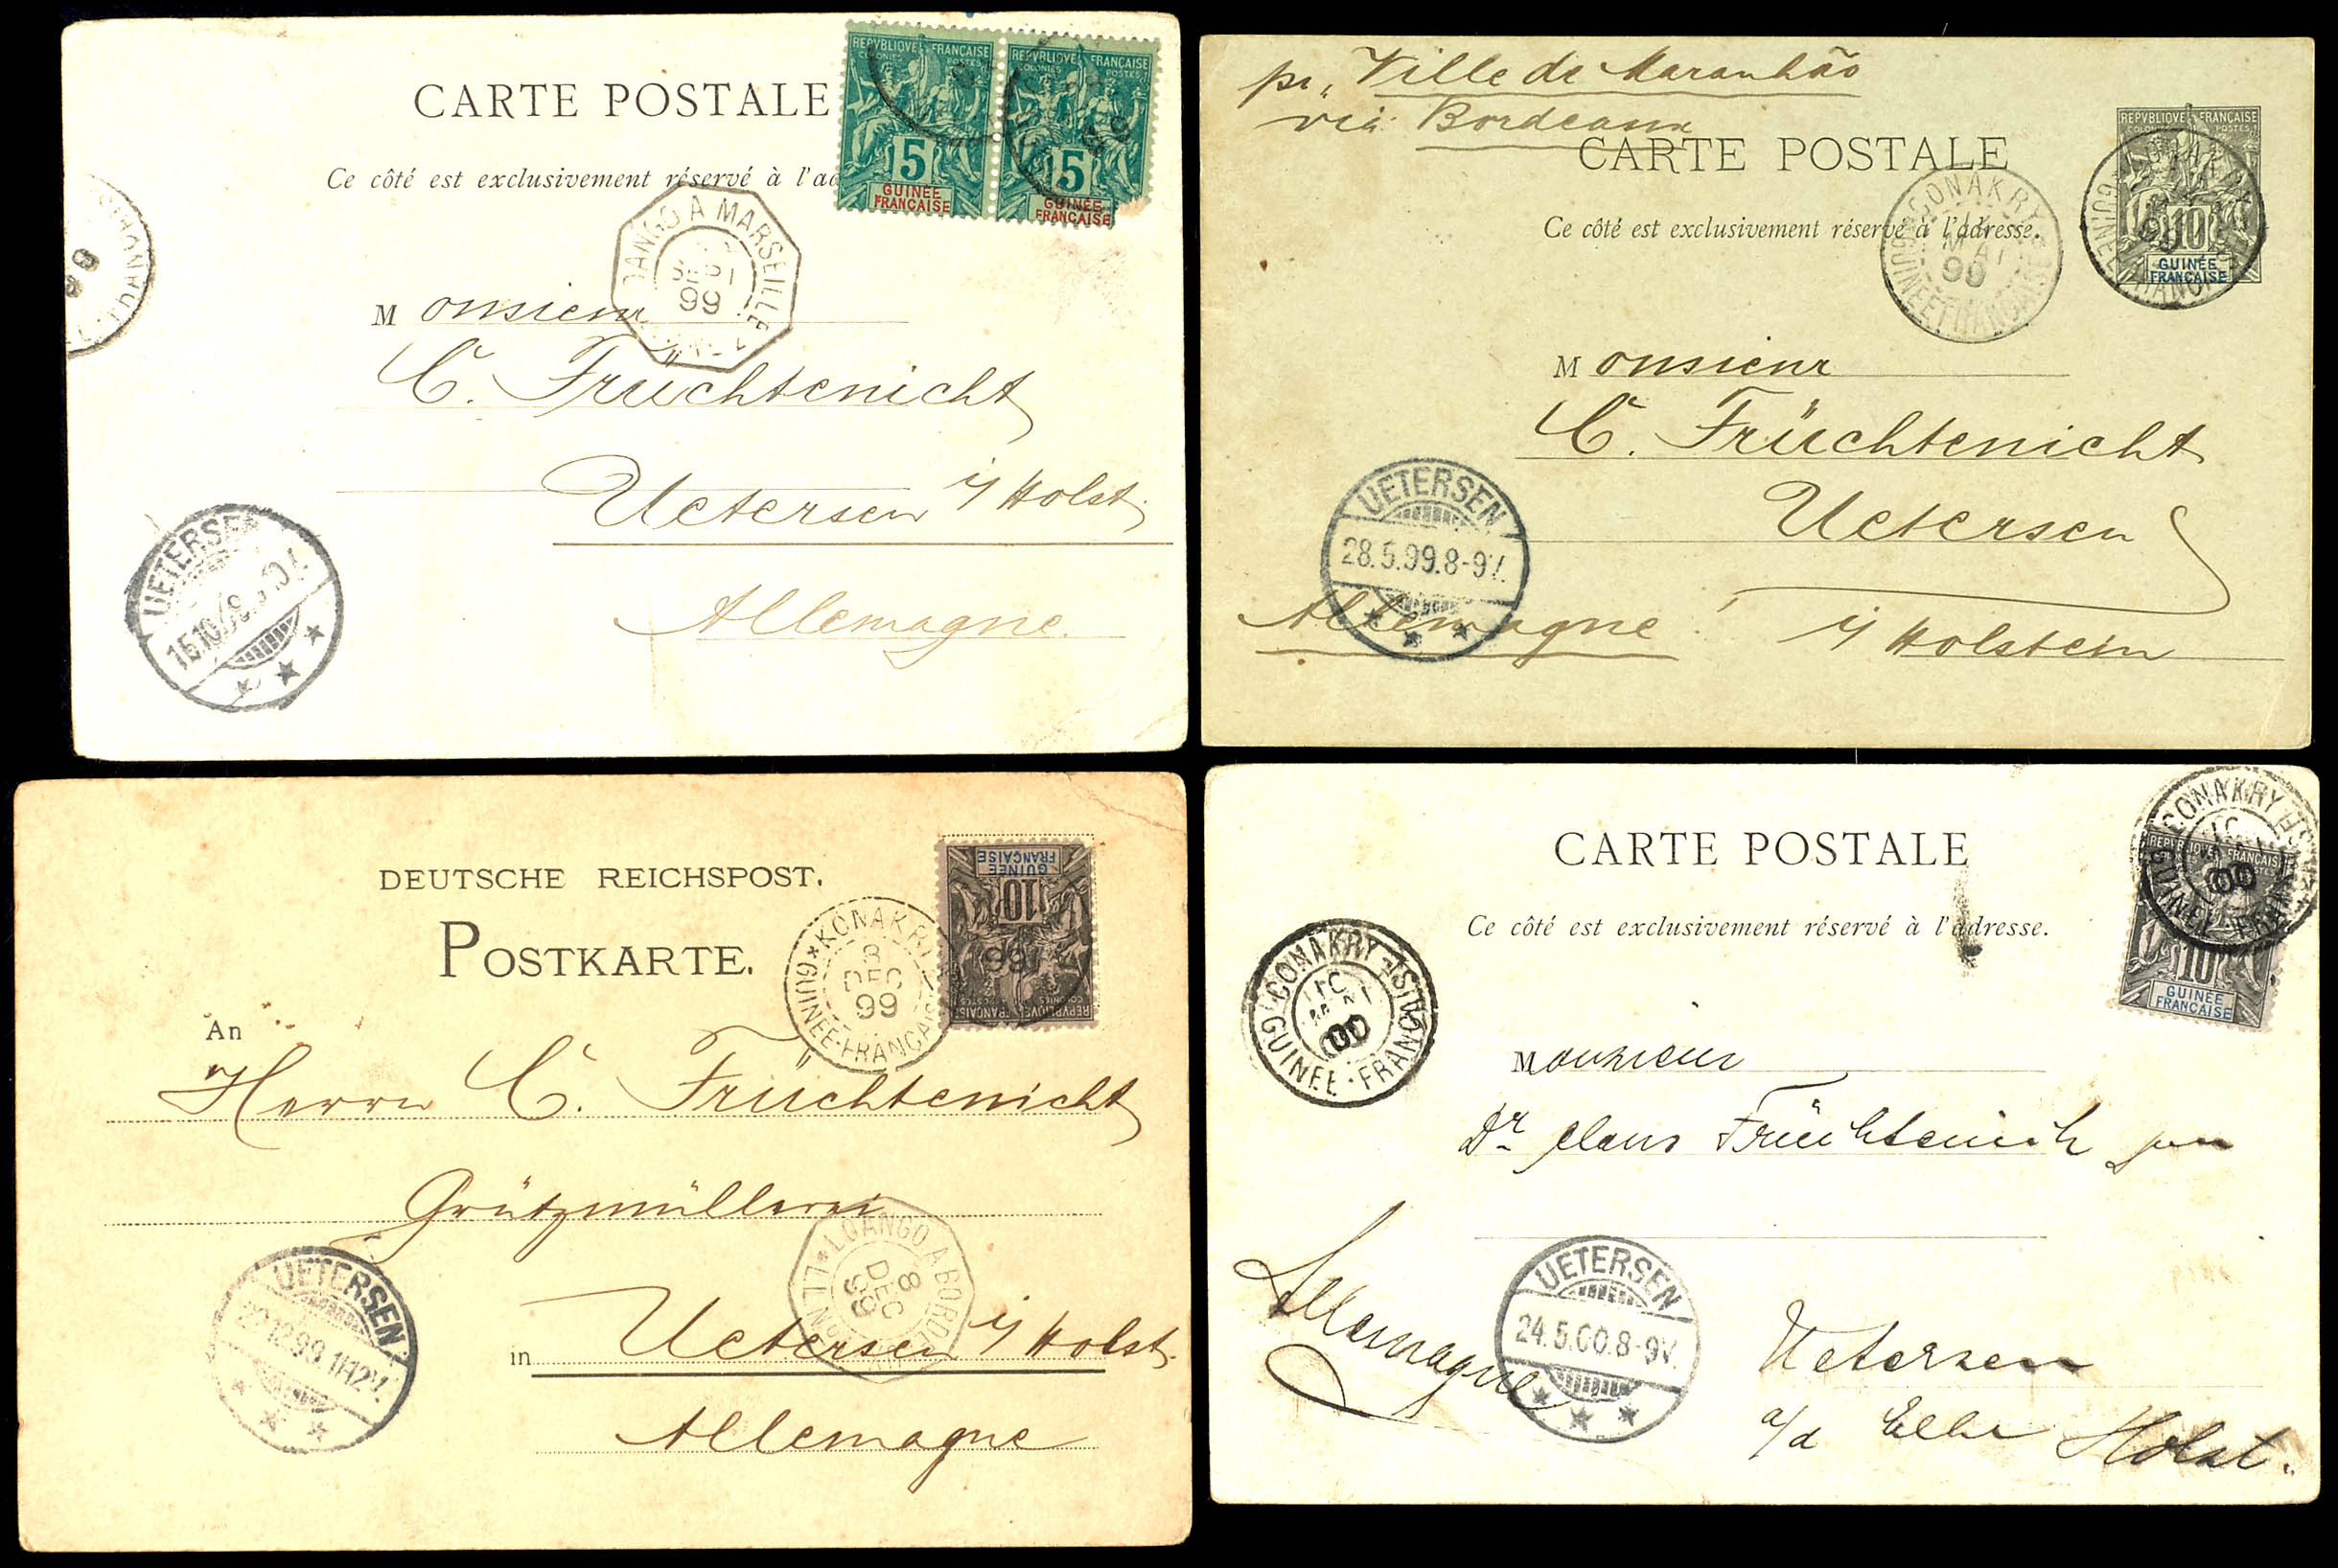 CARTE POSTALE
Ce côté est exclusivement réservé à l'ad
REPVBLIQVE FRANÇAISE
COLONIES POSTES
5
GUINÉE
FRANÇAISE
REPVBLIQVE FRANÇAISE
COLONIES POSTES
5
GUINÉE
FRANÇAISE
OANGO A MARSEILLE
SEPT
99
Monsieur
C. Früchtenicht
Uetersen i/ Holst.
Allemagne.
UETERSEN
15.10.99
pr. "Ville de Maranhão
via Bordeaux
CARTE POSTALE
Ce côté est exclusivement réservé à l'adresse.
REPVBLIQVE FRANÇAISE
COLONIES POSTES
10
GUINÉE
FRANÇAISE
CONAKRY
MAI
99
GUINÉE FRANÇAISE
Monsieur
C. Früchtenicht
Uetersen
i/ Holstein
Allemagne!
UETERSEN
28.5.99.8-9V.
DEUTSCHE REICHSPOST.
POSTKARTE.
REPVBLIQVE FRANÇAISE
COLONIES POSTES
10
GUINÉE
FRANÇAISE
KONAKRY
3
DEC
99
GUINÉE-FRANÇAISE
An
Herrn C. Früchtenicht
Grützmüllerei
in Uetersen i/ Holst.
Allemagne
LOANGO A BORDE
8
DEC
99
L.L.N
UETERSEN
12.99.11-12V.
CARTE POSTALE
Ce côté est exclusivement réservé à l'adresse.
REPVBLIQVE FRANÇAISE
10
GUINÉE
FRANÇAISE
CONAKRY
00
GUINÉE-FRANÇAISE
CONAKRY
00
GUINÉE-FRANÇAISE
Monsieur
Dr Claus Früchtenich jun
Allemagne
Uetersen
a/d Elbe Holst.
UETERSEN
24.5.00.8-9V.